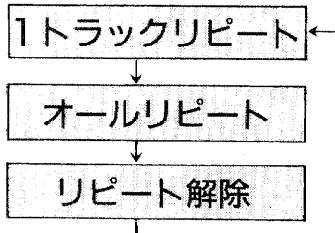 1トラックリピート
オールリピート
リピート解除